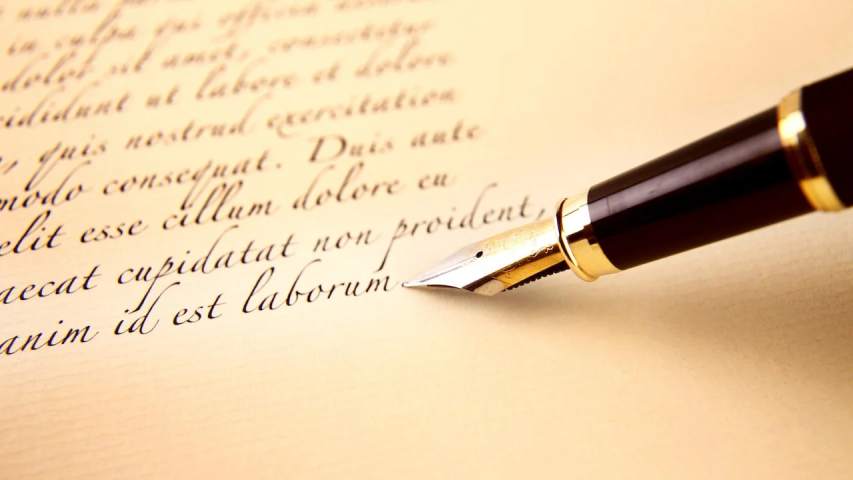 nulla pa
in culpa qui officia
dolor sit amet, consectetur
cididunt ut labore et dolore
, quis nostrud exercitation
modo consequat. Duis aute
elit esse cillum dolore eu
aecat cupidatat non proident,
anim id est laborum